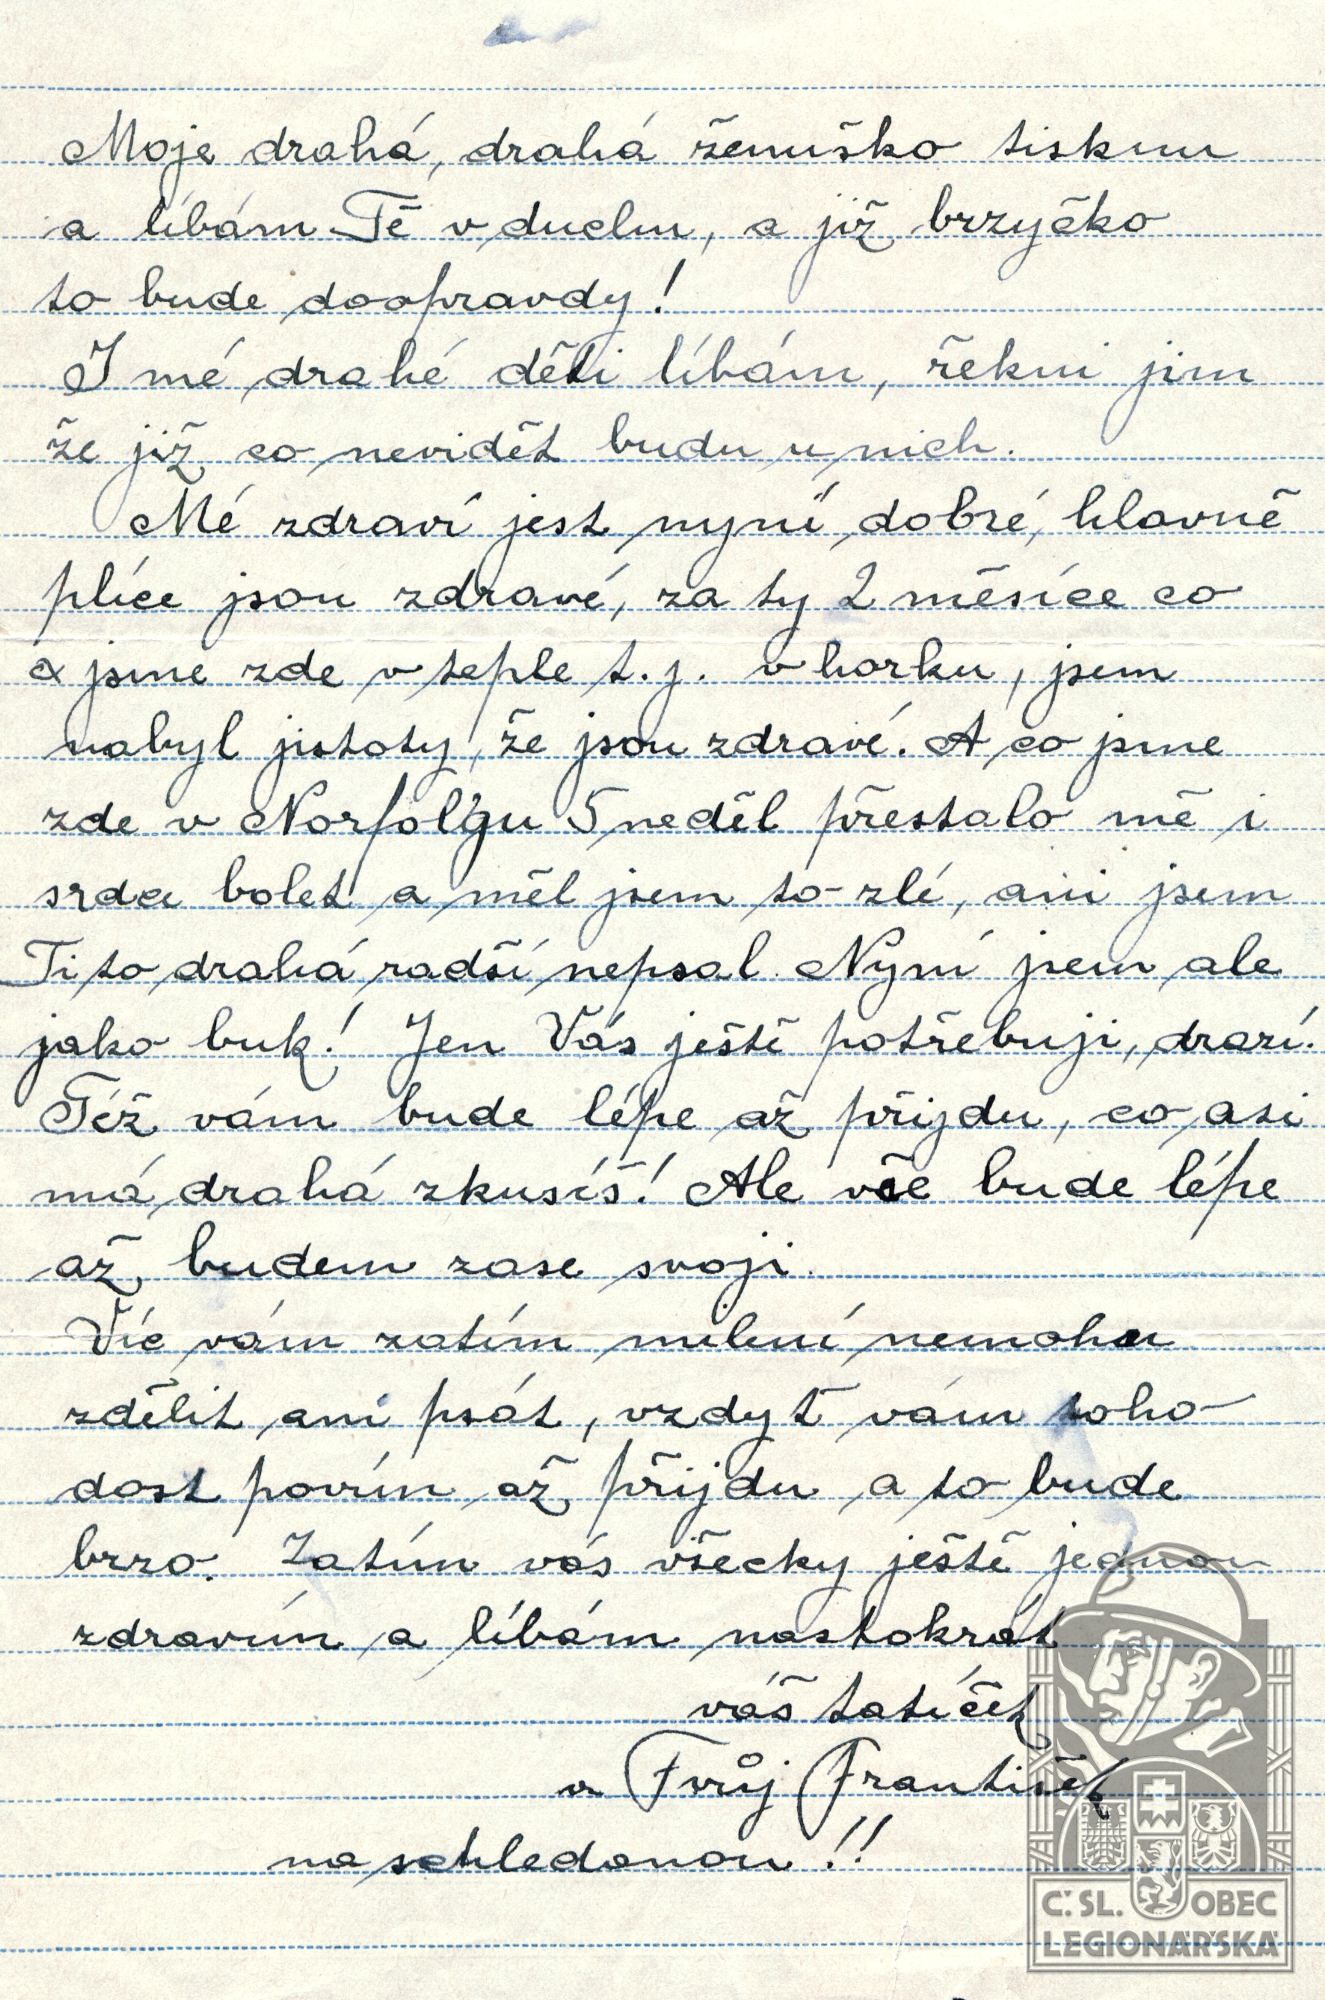 Moje drahá, drahá ženuško tisknu
a líbám Tě v duchu, a již brzyčko
to bude doopravdy!
I mé drahé děti líbám, řekni jim
že již co nevidět budu u nich.
Mé zdraví jest nyní dobré, hlavně
plíce jsou zdravé, za ty 2 měsíce co
jsme zde v teple t.j. v horku, jsem
nabyl jistoty, že jsou zdravé. A co jsme
zde v Norfolgu 5 neděl přestalo mě i
srdce bolet a měl jsem to zlé, ani jsem
Ti to drahá radší nepsal. Nyní jsem ale
jako buk! Jen Vás ještě potřebuji, drazí.
Též vám bude lépe až přijdu, co asi
má drahá zkusíš! Ale vše bude lépe
až budem zase svoji.
Víc vám zatím milení nemohu
zdělit ani psát, vzdyť vám toho
dost povím až přijdu a to bude
brzo. Zatím vás všecky ještě jednou
zdravím a líbám nastokrát
váš tatíček
a Tvůj František
na schledanou!!
Č.SL. OBEC
LEGIONÁŘSKÁ